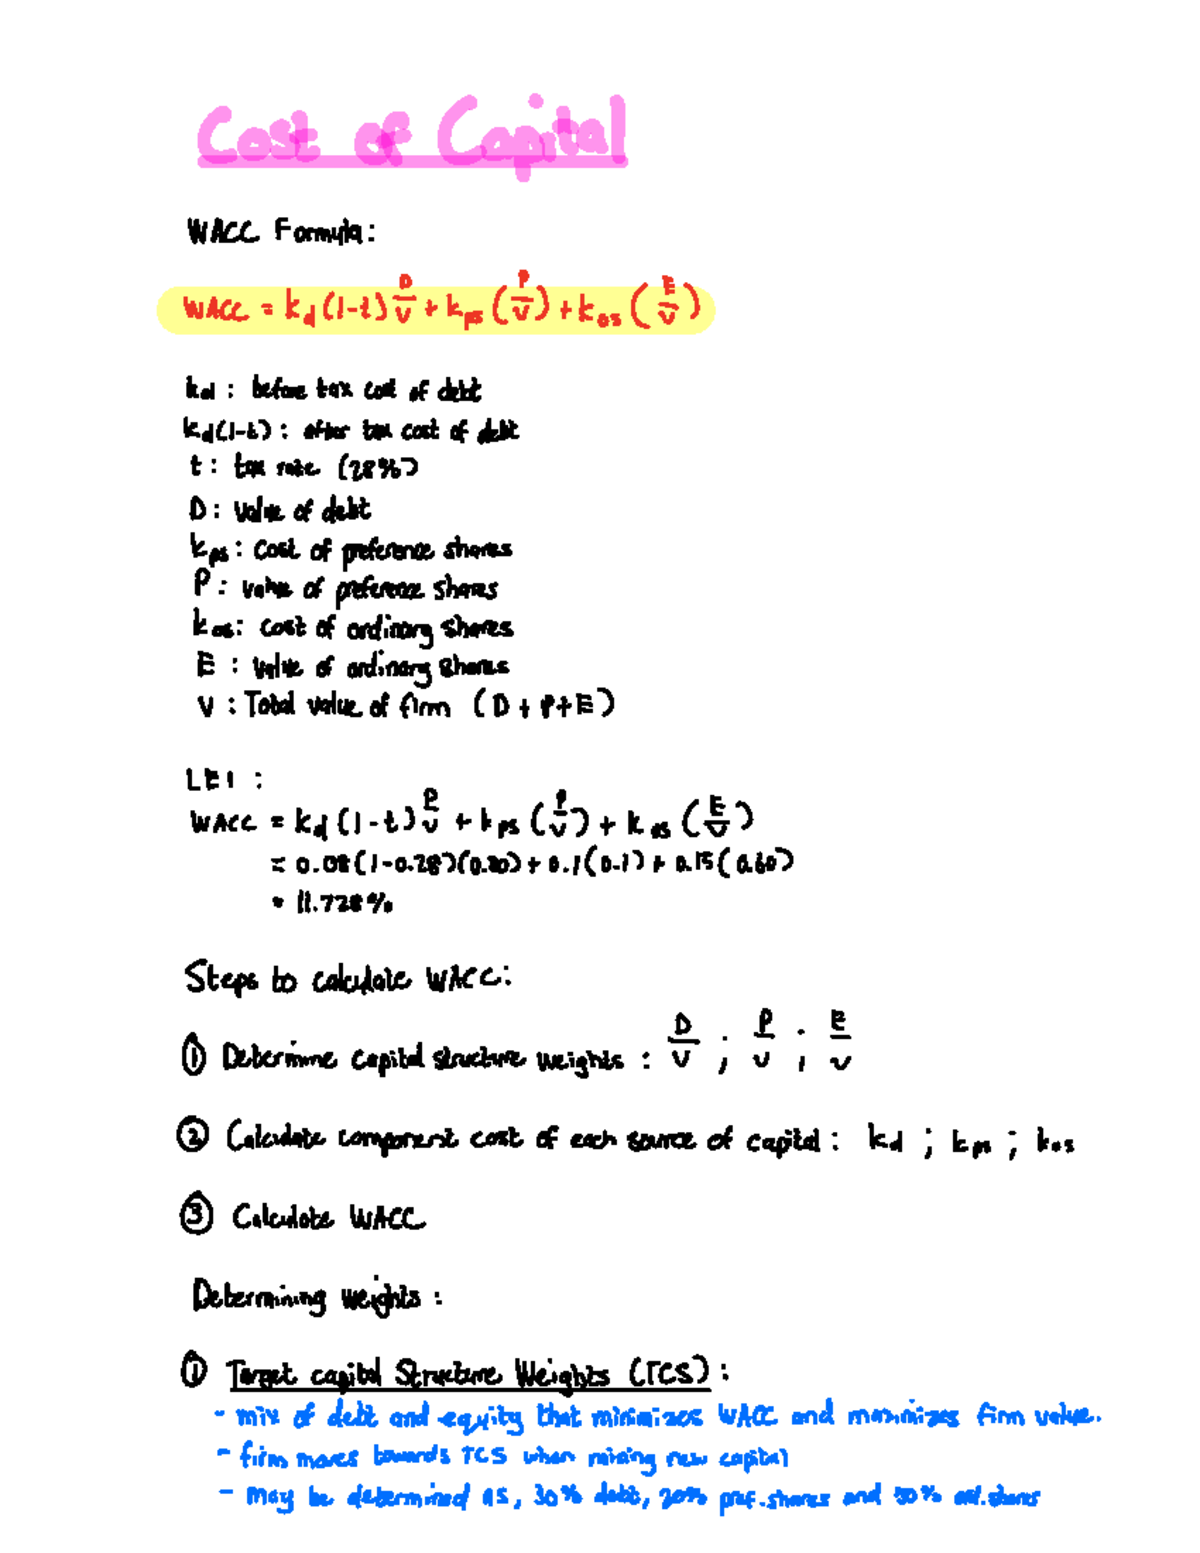 Cost of Capital
WACC Formula:
WACC = kd(1-t) D/V + kps (P/V) + kos (E/V)
kd : before tax cost of debt
kd(1-t) : after tax cost of debt
t : tax rate (28%)
D : Value of debt
kps : Cost of preference shares
P : value of preference shares
kos : cost of ordinary shares
E : Value of ordinary shares
V : Total value of firm (D + P + E)
LE1 :
WACC = kd (1-t) P/V + kps (P/V) + kos (E/V)
= 0.08(1-0.28)(0.30) + 0.1(0.1) + 0.15(0.60)
= 11.728%
Steps to calculate WACC:
① Determine capital structure weights : D/V ; P/V ; E/V
② Calculate component cost of each source of capital : kd ; kps ; kos
③ Calculate WACC
Determining weights :
① Target capital Structure Weights (TCS) :
- mix of debt and equity that minimizes WACC and maximizes firm value.
- firm moves towards TCS when raising new capital
- may be determined as, 30% debt, 20% pref. shares and 50% ord. shares